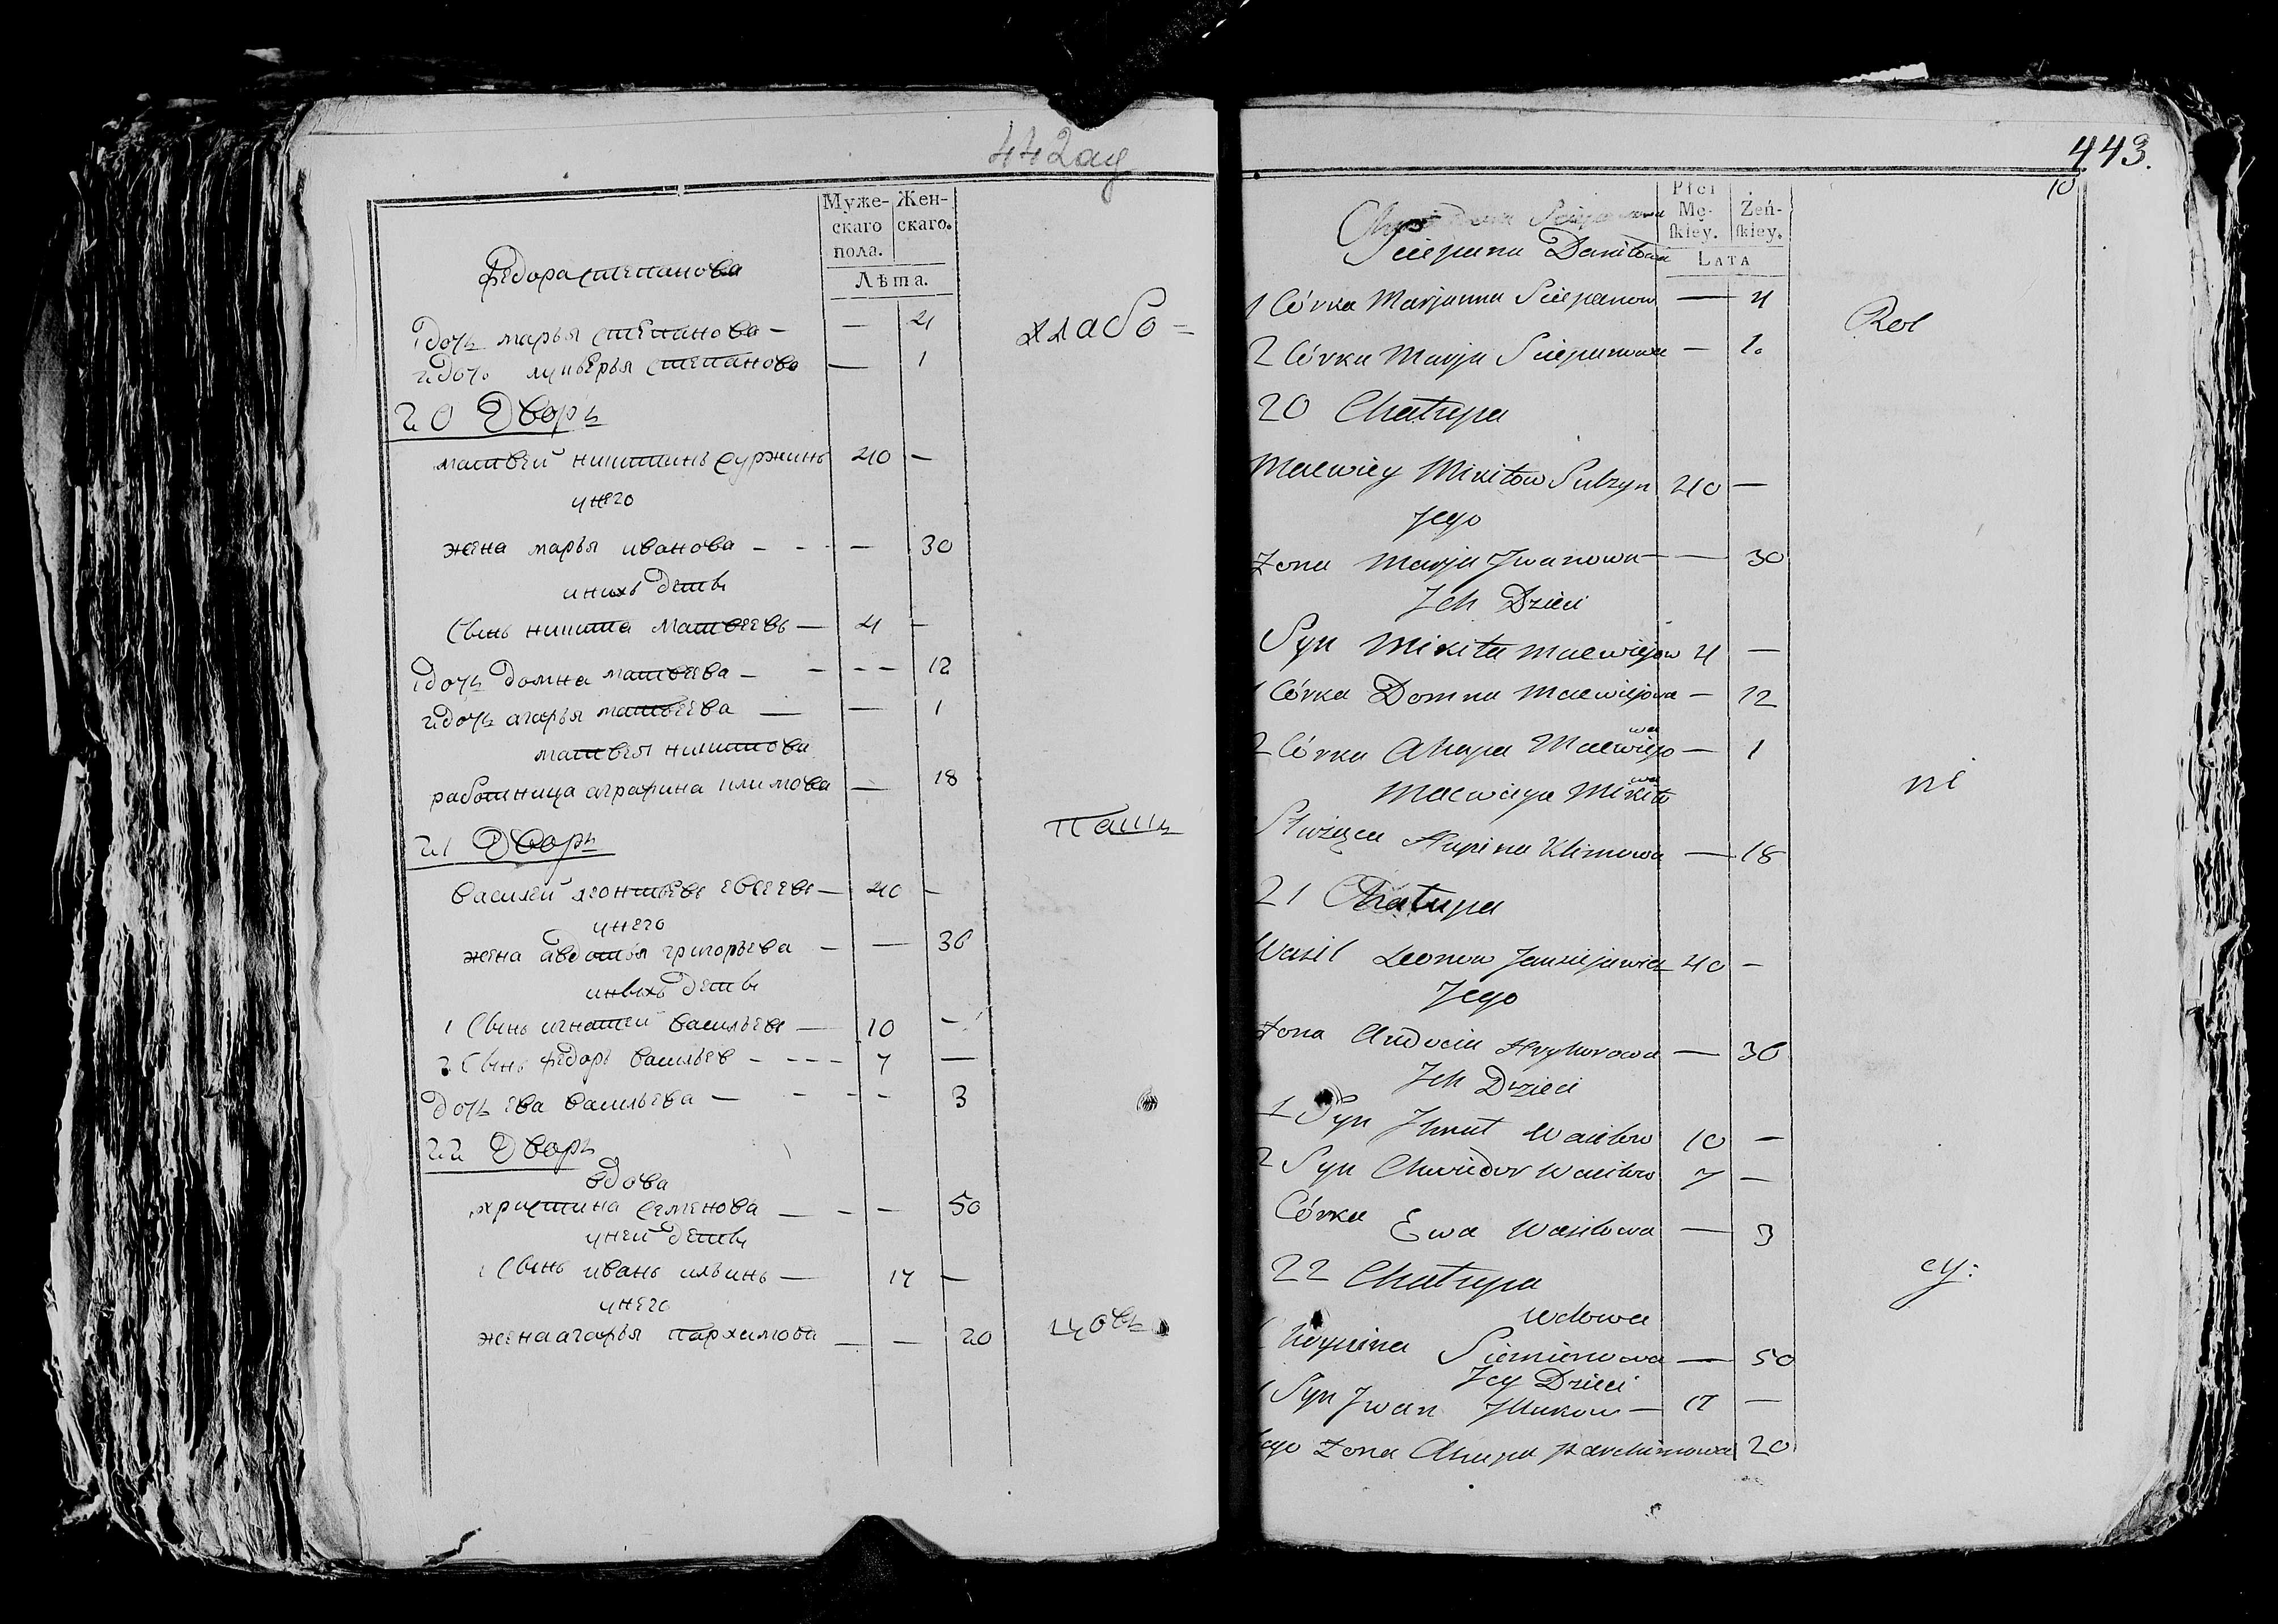 442 об
Муже-
скаго
пола.
Жен-
скаго.
Лѣта.
Федора степанова
1 дочь марья степанова — — 4
2 дочь лукѣрья степанова — 1
хлебо=
20 Дворъ
матвей никитинъ суржинъ 40 —
у него
жена марья иванова — — 30
и нихъ дети
сынъ никита матвеевъ — 4 —
1 дочь домна матвеева — — 12
2 дочь агафья матвеева — — 1
матвея никитова
работница аграфина климова — 18
паш
21 Дворъ
василей леонтьевъ евсеевъ — 40 —
у него
жена авдотья григорьева — — 30
и нихъ дети
1 сынъ игнатей васильевъ — 10 —
2 сынъ федоръ васильев — 7 —
дочь ева васильева — — 3
22 Дворъ
вдова
христина семенова — — 50
у ней дети
1 сынъ иванъ ильинъ — 17 —
у него
жена агафья пархимова — — 20
цовъ
443.
10
Płci
Mę-
ſkiey.
Żeń-
ſkiey.
LATA
Sciepana Daniłowa
1 Córka Marjanna Sciepanow — 4
2 Córka Marja Sciepanowa — 1.
Rol
20 Chałupa
Maćwiey Mikitow Sulzyn 40 —
Jego
Żona Marja Jwanowa — 30
Jch Dzieci
Syn Mikita Maćwiejow 4 —
1 Córka Domna Maćwiejowa — 12
2 Córka Ahapa Maćwiejowa — 1
Maćwieja Mikitowa
Służąca Hapina Klimowa — 18
ni
21 Chałupa
Wasil Leonow Jausiejewicz 40 —
Jego
Żona Audocia Hryhorowa — 30
Jch Dzieci
1 Syn Jhnat Wasilow 10 —
2 Syn Chwiedor Wasilow 7 —
Córka Ewa Wasilowa — 3
22 Chałupa
cy:
wdowa
Siemionowa — 50
Jey Dzieci
1 Syn Jwan — 17 —
Jego Żona Ahapa Parchimowa 20